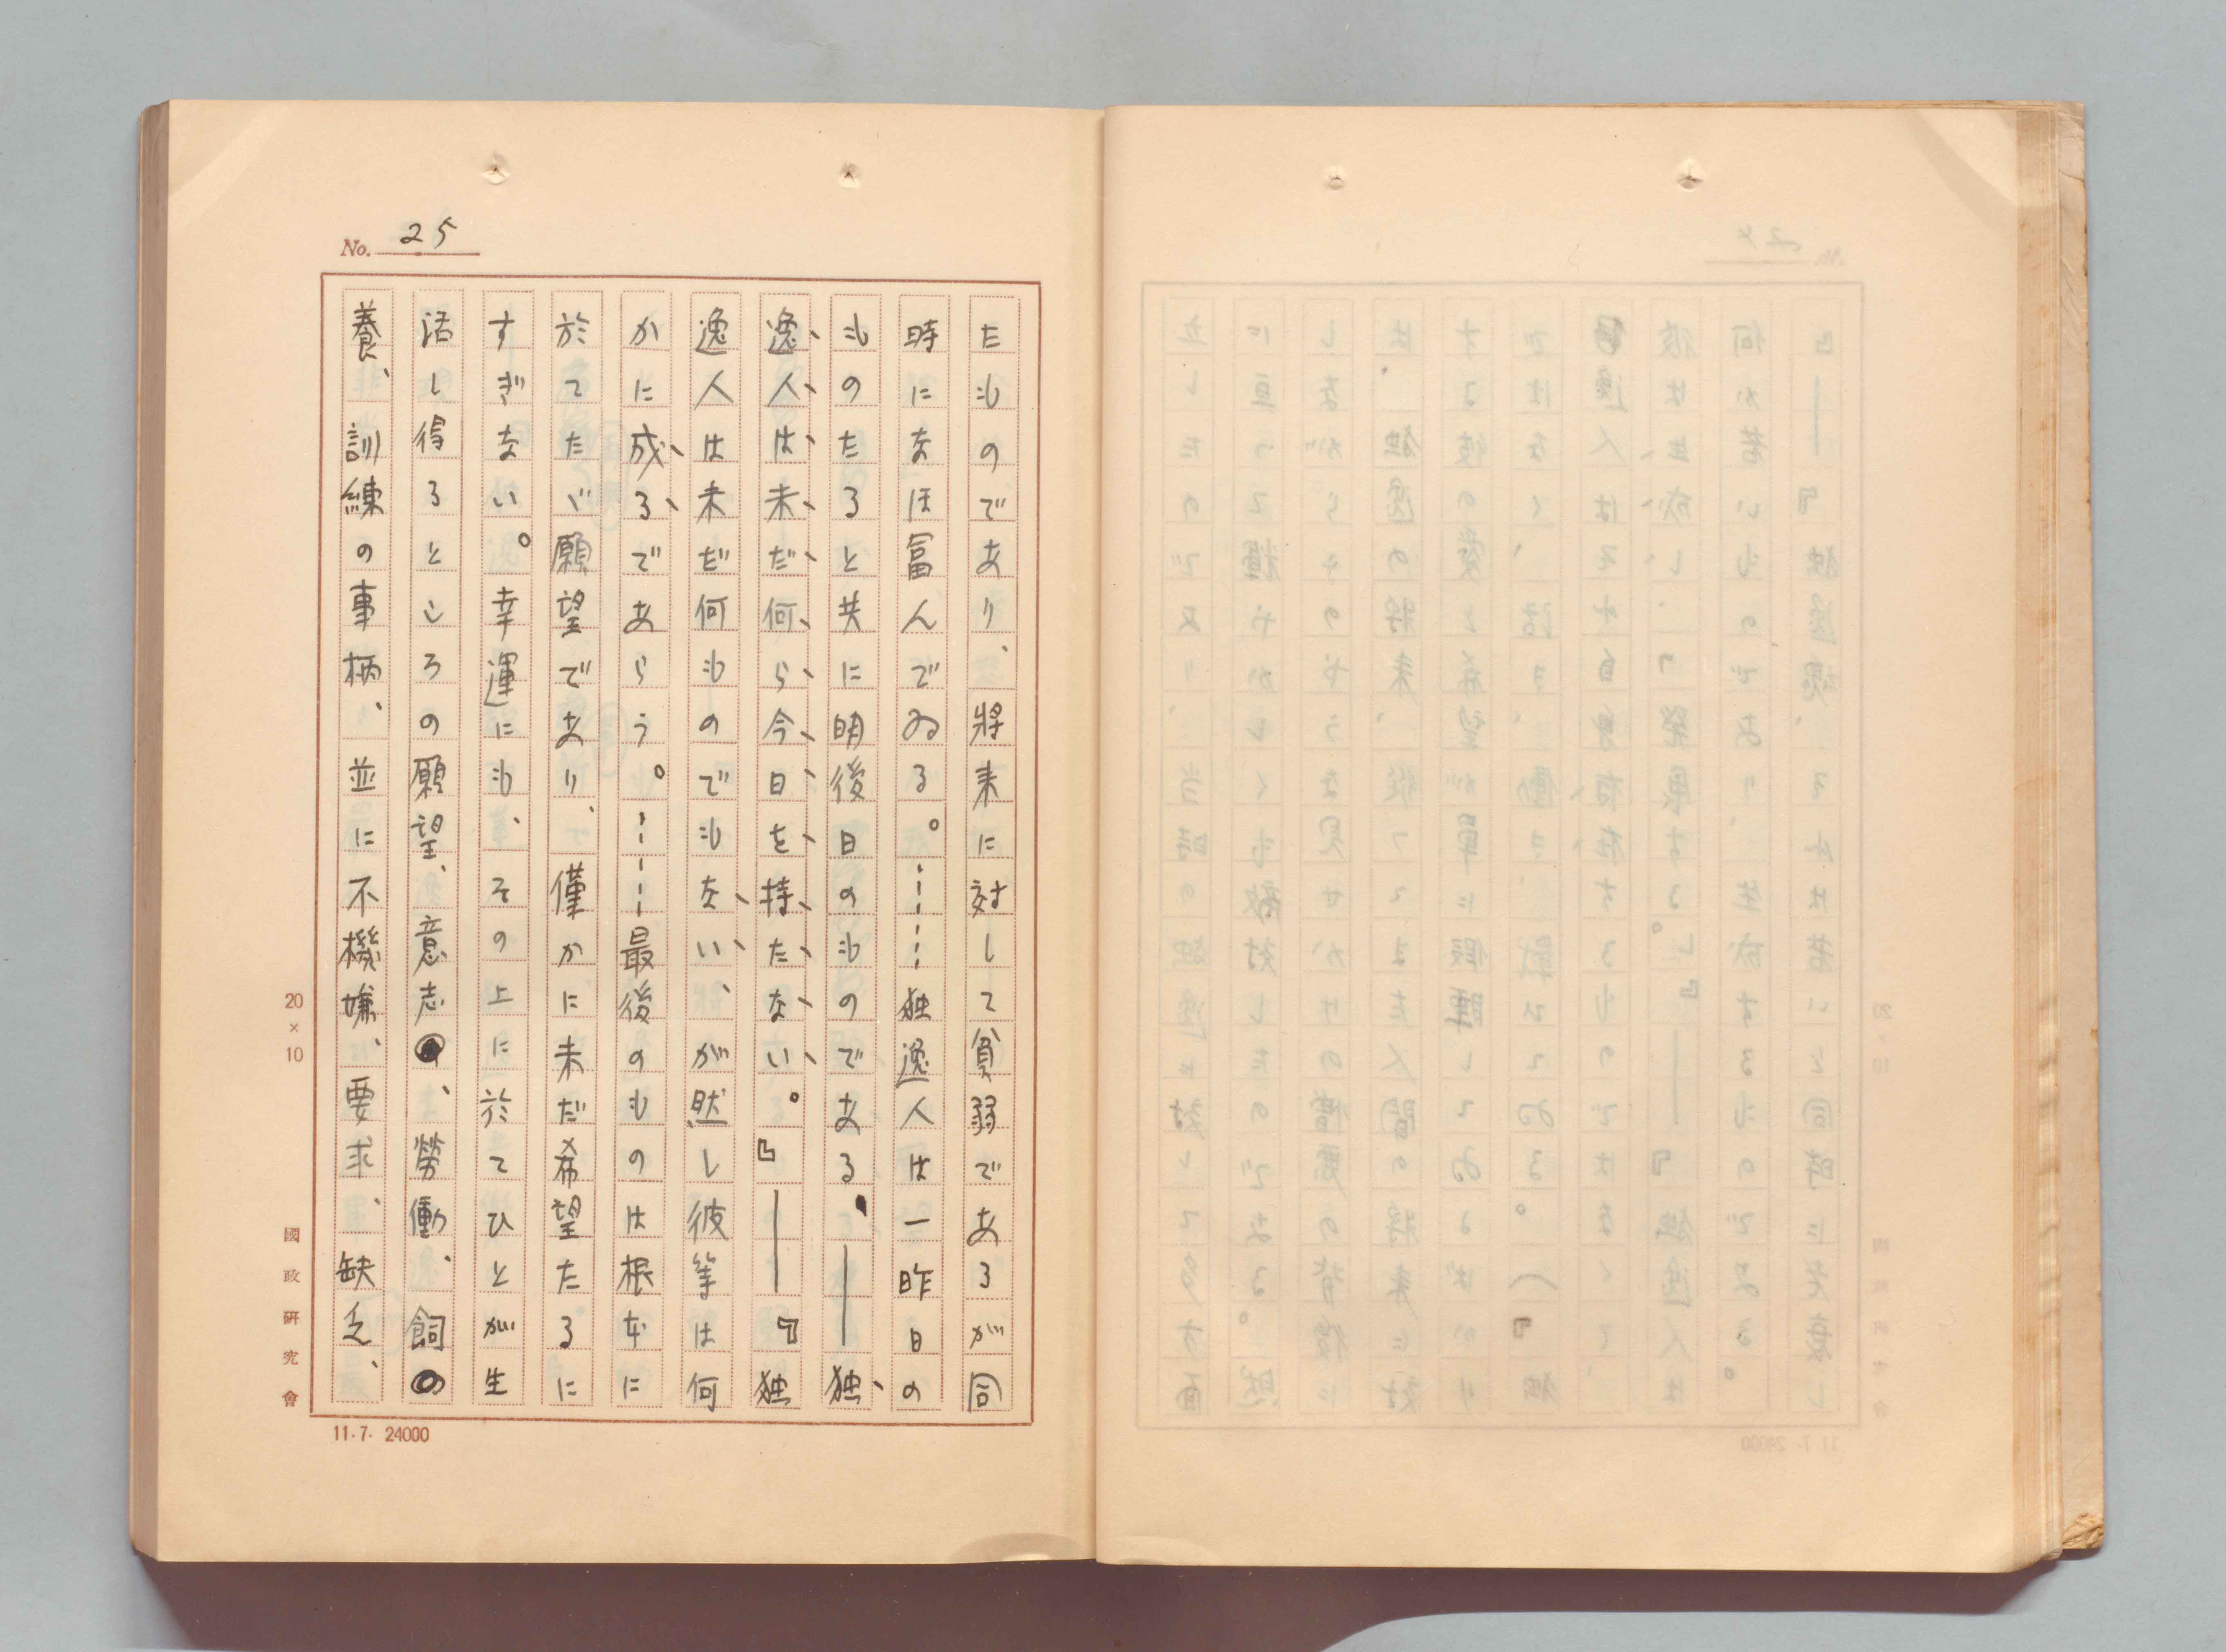 No. 25
たものであり、將来に対して貧弱であるが同
時になほ冨んでゐる。……独逸人は一昨日の
ものたると共に明後日のものである。――独
逸人は未だ何ら今日を持たない。』――『独
逸人は未だ何ものでもない、が然し彼等は何
かに成るであらう。……最後のものは根本に
於てたゞ願望であり、僅かに未だ希望たるに
すぎない。幸運にも、その上に於てひとが生
活し得るところの願望、意志、勞働、飼
養、訓練の事柄、並に不機嫌、要求、缺乏、
20×10
國政研究會
11.7. 24000